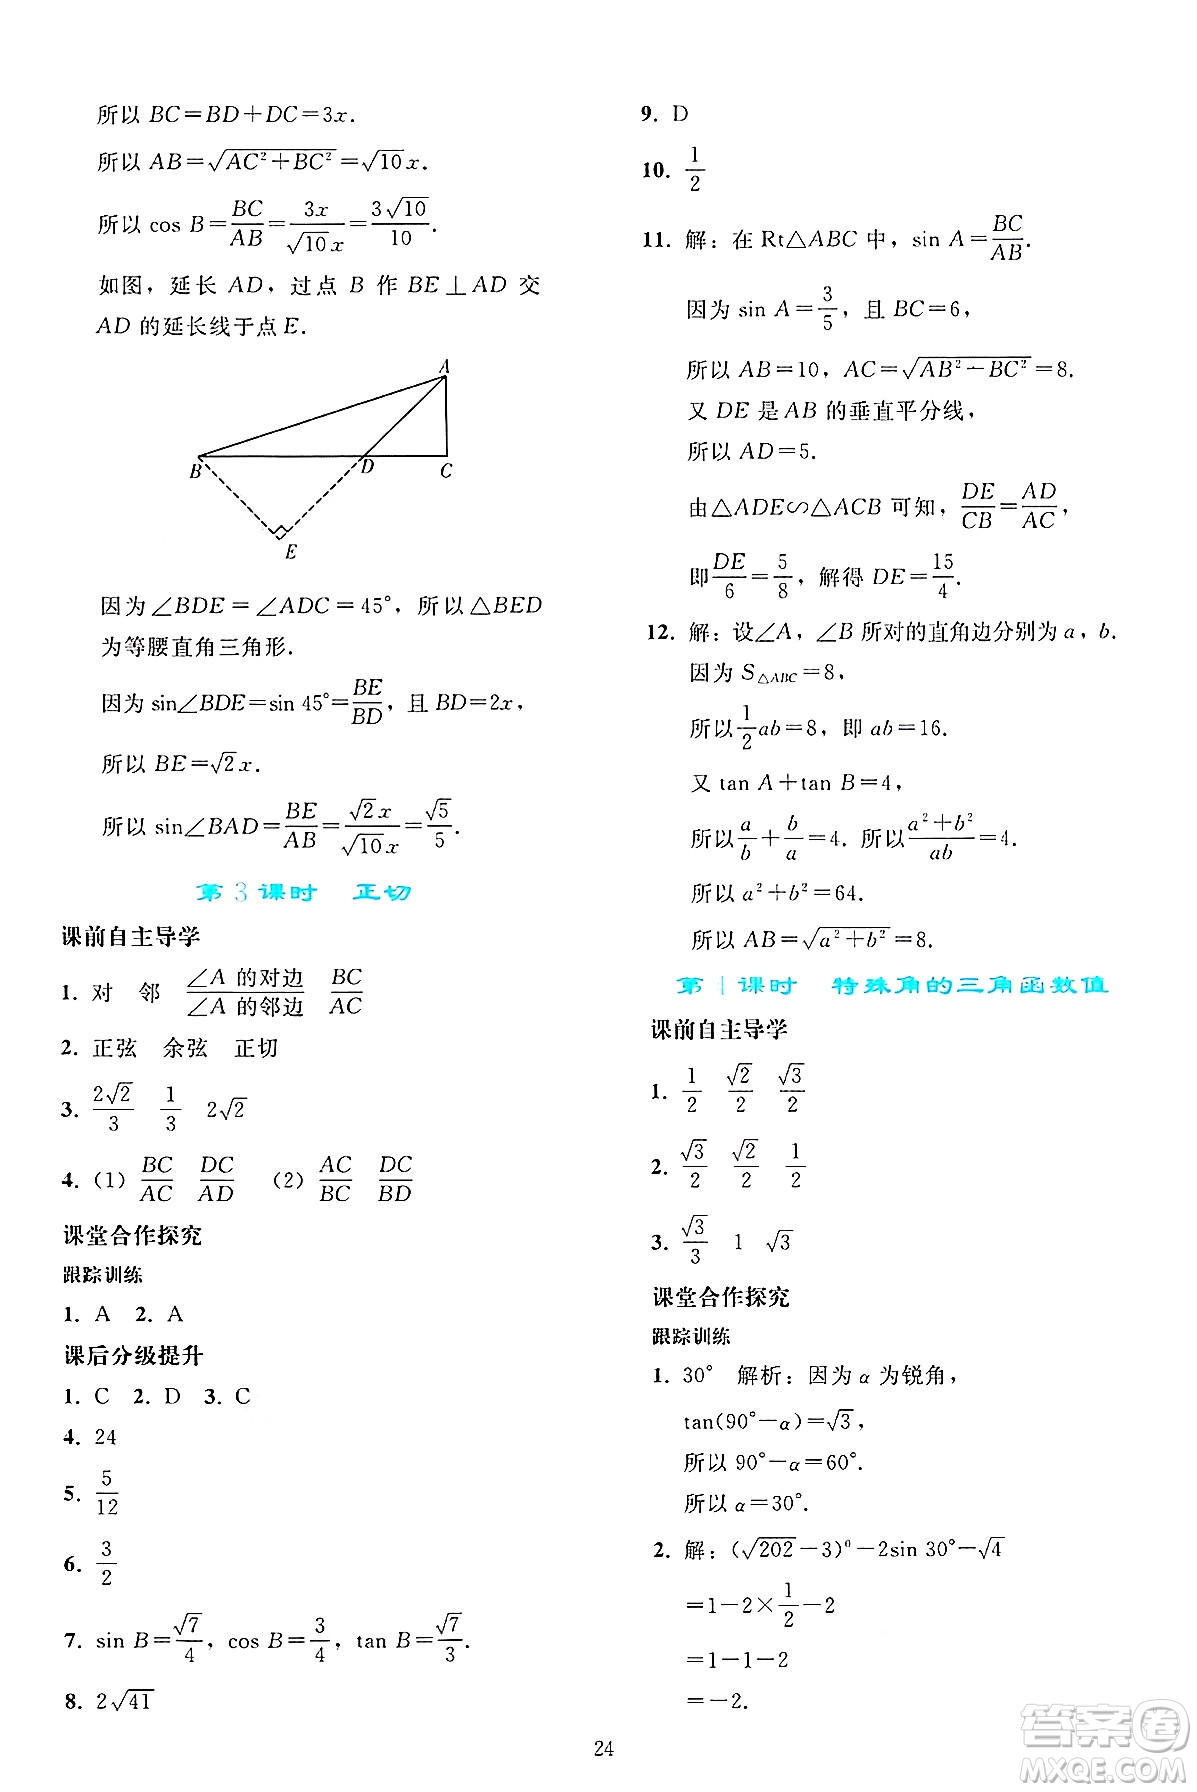 所以 BC=BD+DC=3x.
所以 AB=√(AC²+BC²)=√10x.
所以 cos B=BC/AB=3x/(√10x)=3√10/10.
如图，延长 AD，过点 B 作 BE⊥AD 交
AD 的延长线于点 E.
A
B D C
E
因为∠BDE=∠ADC=45°，所以△BED
为等腰直角三角形.
因为 sin∠BDE=sin 45°=BE/BD，且 BD=2x，
所以 BE=√2x.
所以 sin∠BAD=BE/AB=√2x/(√10x)=√5/5.
第3课时 正切
课前自主导学
1. 对 邻 ∠A 的对边/∠A 的邻边 BC/AC
2. 正弦 余弦 正切
3. 2√2/3 1/3 2√2
4. (1) BC/AC DC/AD (2) AC/BC DC/BD
课堂合作探究
跟踪训练
1. A 2. A
课后分级提升
1. C 2. D 3. C
4. 24
5. 5/12
6. 3/2
7. sin B=√7/4，cos B=3/4，tan B=√7/3.
8. 2√41
9. D
10. 1/2
11. 解：在 Rt△ABC 中，sin A=BC/AB.
因为 sin A=3/5，且 BC=6，
所以 AB=10，AC=√(AB²-BC²)=8.
又 DE 是 AB 的垂直平分线，
所以 AD=5.
由△ADE∽△ACB 可知，DE/CB=AD/AC，
即DE/6=5/8，解得 DE=15/4.
12. 解：设∠A，∠B 所对的直角边分别为 a，b.
因为 S△ABC=8，
所以1/2ab=8，即 ab=16.
又 tan A+tan B=4，
所以a/b+b/a=4. 所以(a²+b²)/ab=4.
所以 a²+b²=64.
所以 AB=√(a²+b²)=8.
第4课时 特殊角的三角函数值
课前自主导学
1. 1/2 √2/2 √3/2
2. √3/2 √2/2 1/2
3. √3/3 1 √3
课堂合作探究
跟踪训练
1. 30° 解析：因为 α 为锐角，
tan(90°-α)=√3，
所以 90°-α=60°.
所以 α=30°.
2. 解：(√202-3)⁰-2sin 30°-√4
=1-2×1/2-2
=1-1-2
=-2.
24
答案圈
MXQE.COM